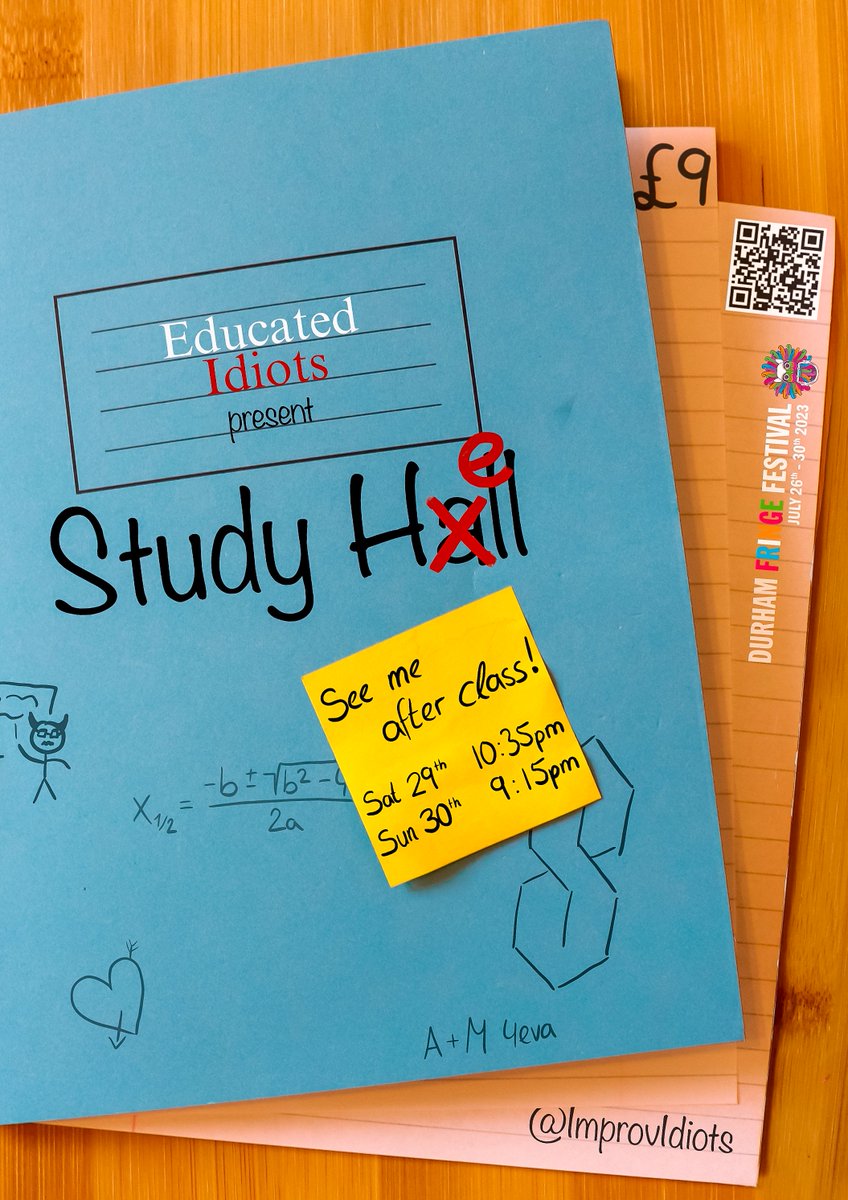 £9
Educated
Idiots
present
Study Hall
e
See me
after class!
Sat 29th 10:35pm
Sun 30th 9:15pm
X1/2 = -b ± √b² - 4
2a
A + M 4eva
DURHAM FRINGE FESTIVAL
JULY 26th - 30th 2023
@ImprovIdiots